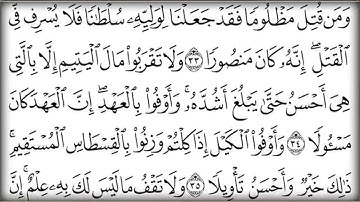 وَمَن قُتِلَ مَظْلُومًا فَقَدْ جَعَلْنَا لِوَلِيِّهِۦ سُلْطَٰنًا فَلَا يُسْرِف فِّى
ٱلْقَتْلِ ۖ إِنَّهُۥ كَانَ مَنصُورًا ٣٣ وَلَا تَقْرَبُوا۟ مَالَ ٱلْيَتِيمِ إِلَّا بِٱلَّتِى
هِىَ أَحْسَنُ حَتَّىٰ يَبْلُغَ أَشُدَّهُۥ ۚ وَأَوْفُوا۟ بِٱلْعَهْدِ ۖ إِنَّ ٱلْعَهْدَ كَانَ
مَسْـُٔولًا ٣٤ وَأَوْفُوا۟ ٱلْكَيْلَ إِذَا كِلْتُمْ وَزِنُوا۟ بِٱلْقِسْطَاسِ ٱلْمُسْتَقِيمِ ۚ
ذَٰلِكَ خَيْرٌ وَأَحْسَنُ تَأْوِيلًا ٣٥ وَلَا تَقْفُ مَا لَيْسَ لَكَ بِهِۦ عِلْمٌ ۚ إِنَّ